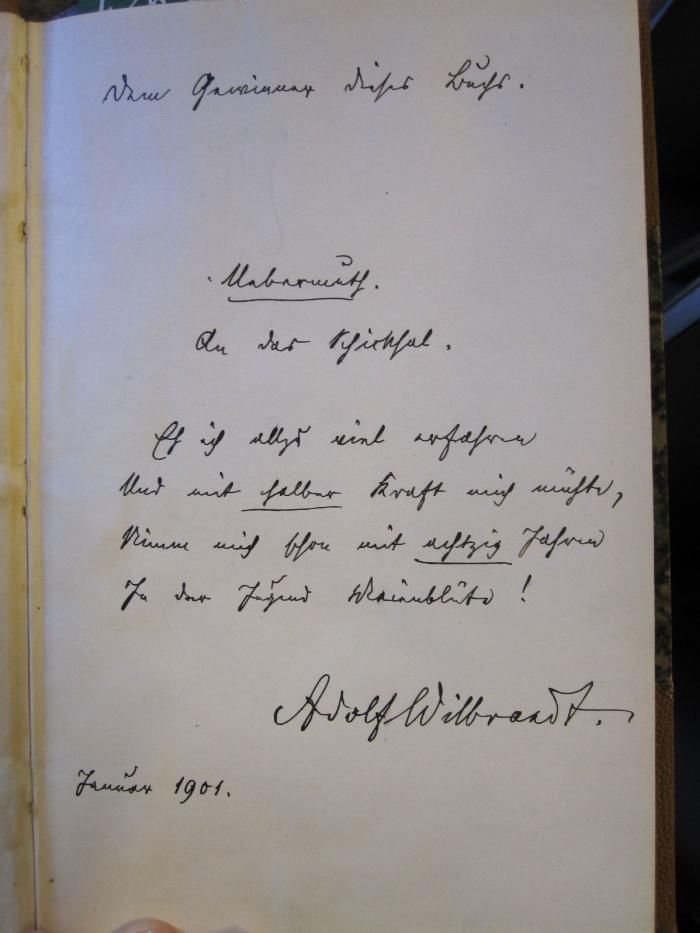 Dem Gewinner dieses Buchs.
Uebermuth.
An das Schicksal.
Eh ich allzu viel erfahren
Und mit halber Kraft mich mühte,
Nimm mich schon mit achtzig Jahren
In der Jugend Maienblüte!
Adolf Wilbrandt.
Januar 1901.